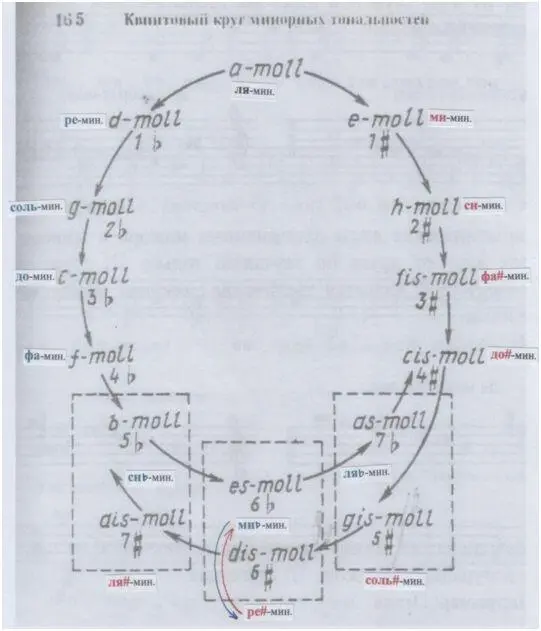 165 Квинтовый круг минорных тональностей
a-moll
ля-мин.
ре-мин. d-moll
1♭
e-moll ми-мин.
1♯
соль-мин. g-moll
2♭
h-moll си-мин.
2♯
до-мин. c-moll
3♭
fis-moll фа#-мин.
3♯
фа-мин. f-moll
4♭
cis-moll до#-мин.
4♯
b-moll
5♭
as-moll
7♭
сиь-мин.
es-moll
6♭
ляь-мин.
ais-moll
7♯
миь-мин.
gis-moll
5♯
dis-moll
6♯
ля#-мин.
соль#-мин.
ре#-мин.